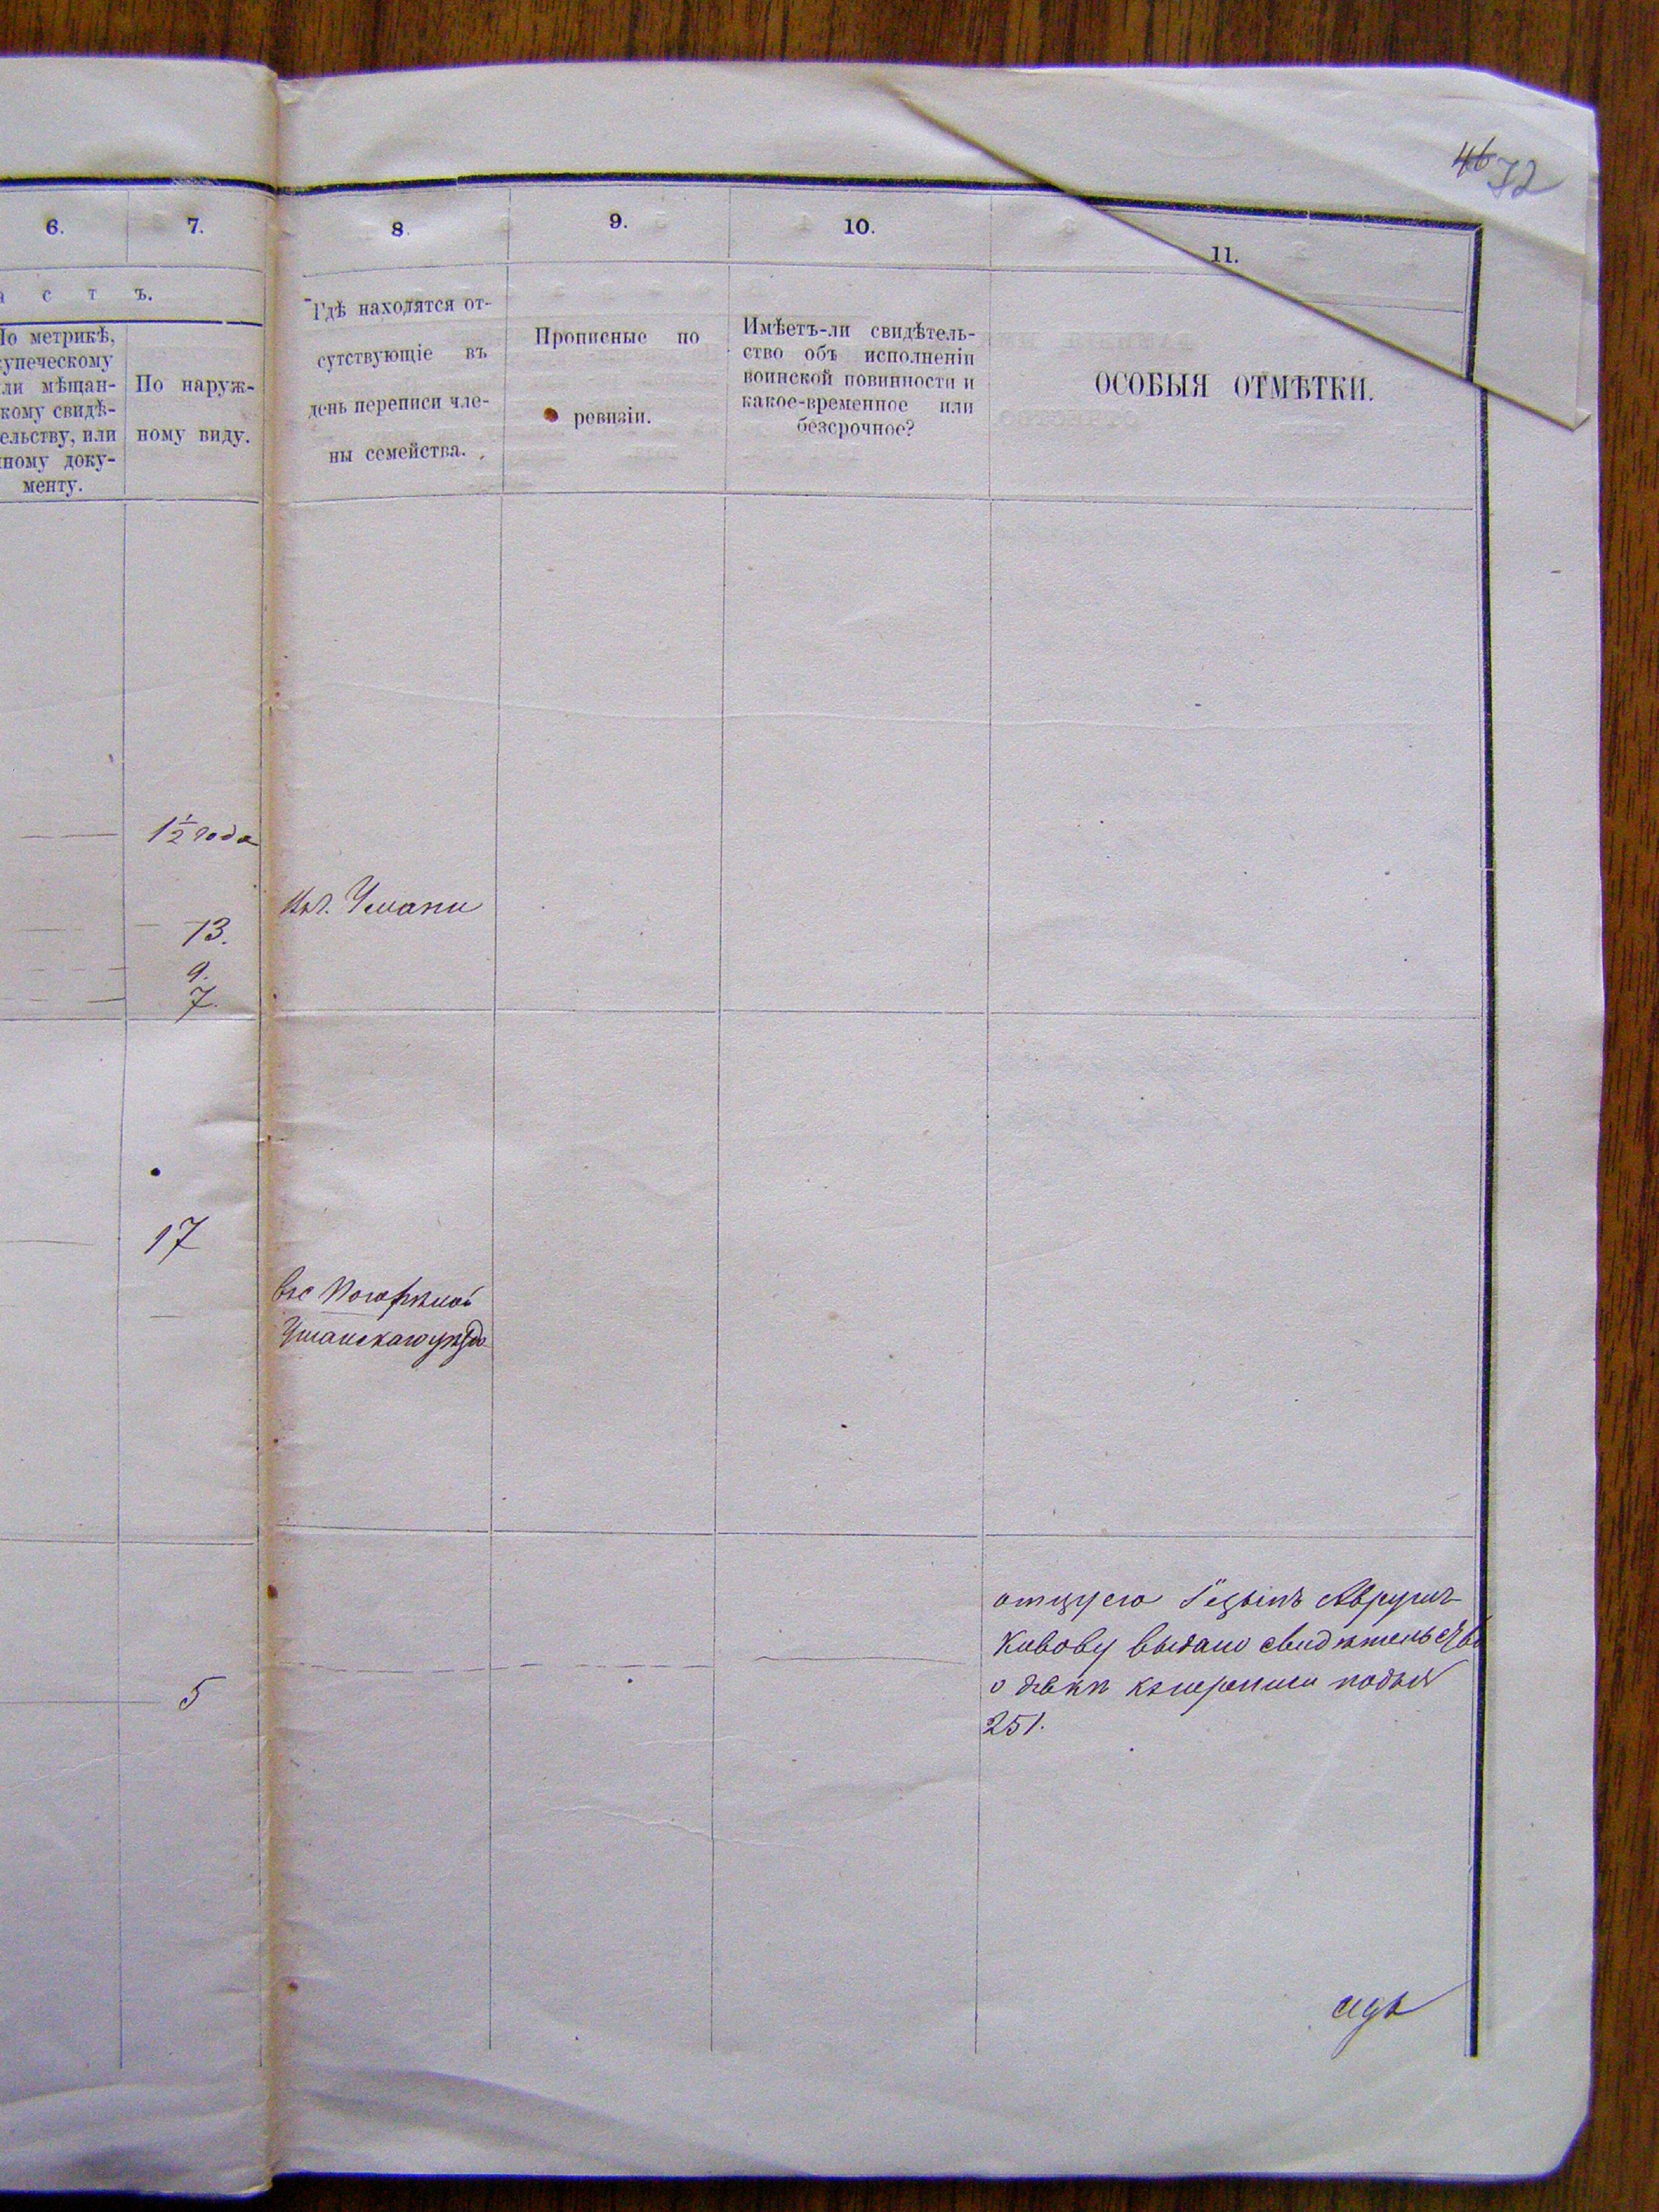 46 72
6.
7.
8.
9.
10.
11.
а с т ъ.
По метрикѣ,
купеческому
или мѣщан-
скому свидѣ-
тельству, или
иному доку-
менту.
По наруж-
ному виду.
Гдѣ находятся от-
сутствующіе въ
день переписи чле-
ны семейства.
Прописные по
ревизіи.
Имѣетъ-ли свидѣтель-
ство объ исполненіи
воинской повинности и
какое-временное или
безсрочное?
ОСОБЫЯ ОТМѢТКИ.
1 1/2 года
Умани
13.
9.
7.
17
Уманскаго уѣзда
5
отцу его
выдано свидѣтельство
251.